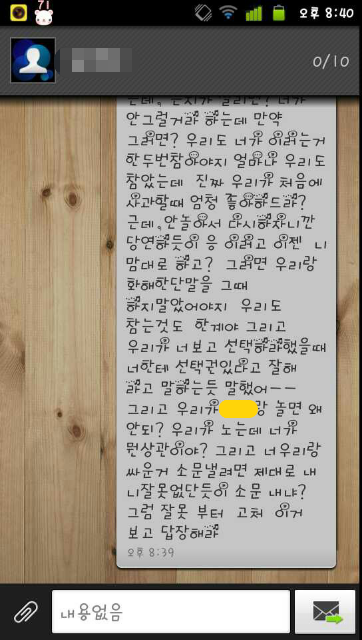 71
오후 8:40
0/10
안그럴거라 하는데 만약
그러면? 우리도 너가 이러는거
한두번참아야지 얼마나 우리도
참았는데 진짜 우리가 처음에
사과할때 엄청 좋아하드라?
근데, 안놀아서 다시하자니깐
당연하듯이 응 이러고 이젠 니
맘대로 하고? 그러면 우리랑
화해한단말을 그때
하지말았어야지 우리도
참는것도 한계야 그리고
우리가 너보고 선택하라했을때
너한테 선택권있다고 잘해
라고 말하는듯 말했어ㅡㅡ
그리고 우리가 랑 놀면 왜
안되? 우리가 노는데 너가
뭔상관이야? 그리고 너우리랑
싸운거 소문낼려면 제대로 내
니잘못없단듯이 소문 내냐?
그럼 잘못 부터 고쳐 이거
보고 답장해라
오후 8:39
내용없음